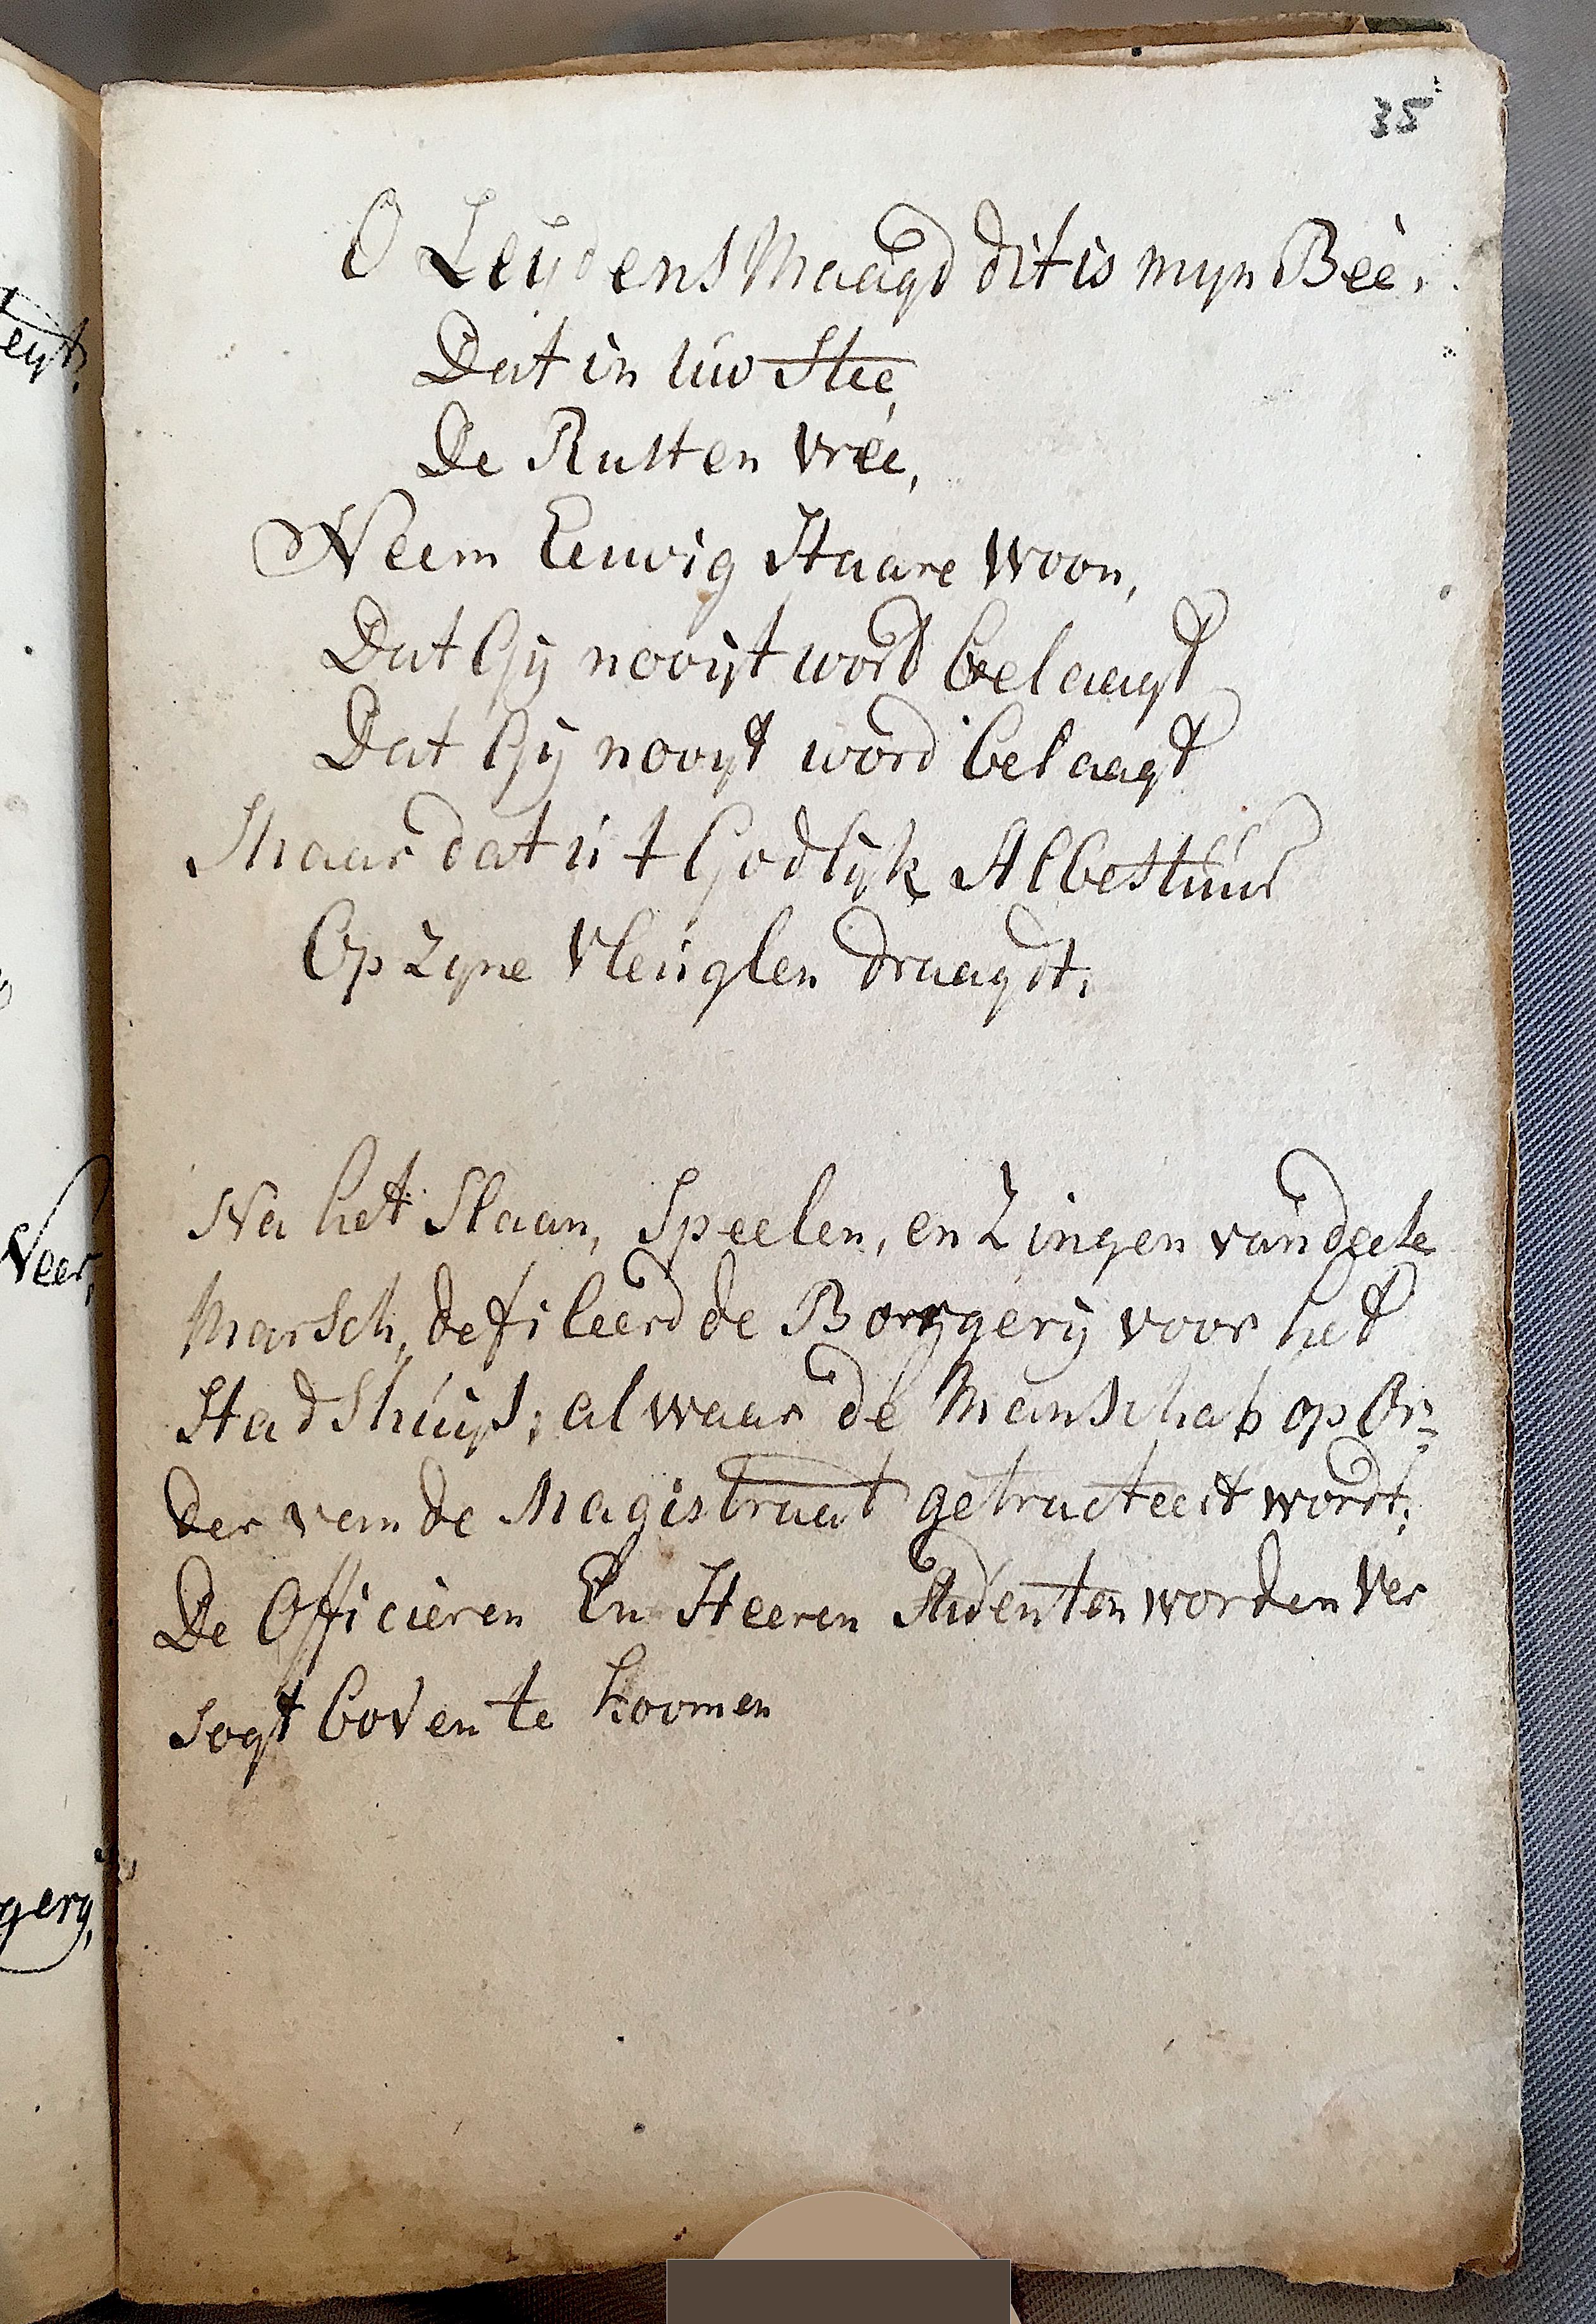 35
O Leydens Maagd dit is myn Beê,
Dat in úw Stee,
De Rust en Vreê,
Neem Eeuwig Haare Woon,
Dat Gÿ nooÿt word belaagt
Dat Gÿ nooyt word belaagt
Maar dat ú 't Godlÿk Albestúúr
Op Zyne Vleúglen draagdt.
Na het Slaan, Speelen, en Zingen van deese
Marsch, defileerd de Borgerÿ voor het
Stadshúijs, alwaar de Manschap op Or=
der van de Magistraat getracteert wordt,
De Officieren En Heeren Studenten worden Ver
sogt boven te koomen
eyt,
Neer,
gery,